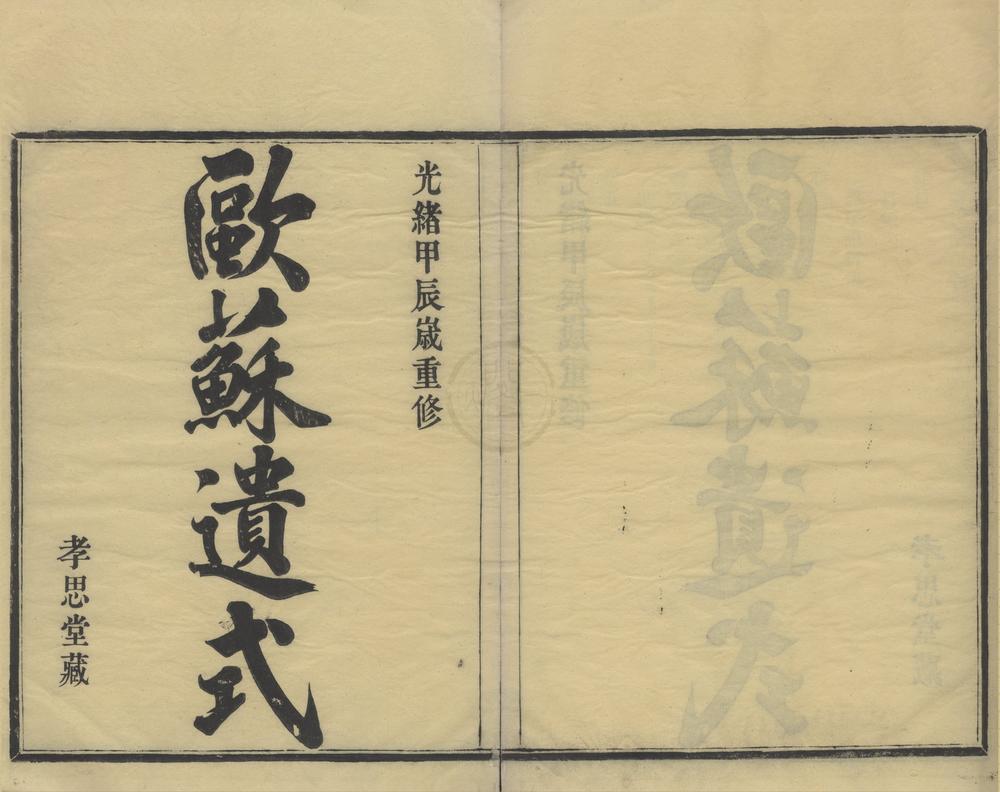 光緒甲辰嵗重修
歐蘇遺式
孝思堂藏